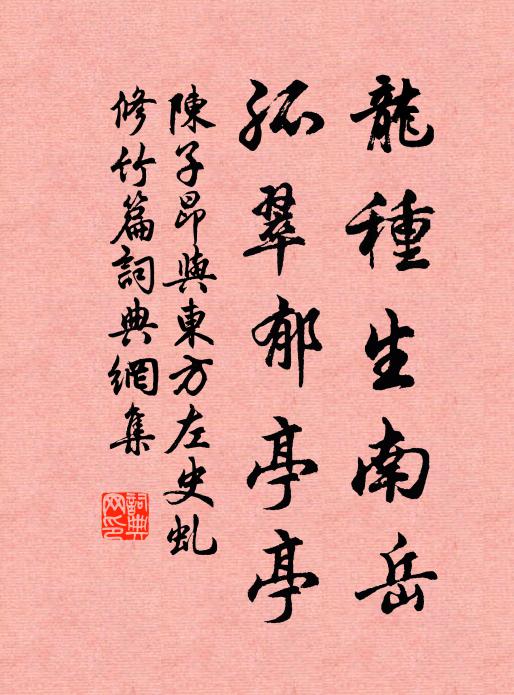 龍種生南岳
孤翠郁亭亭
陳子昂與東方左史虬
修竹篇詞典網集
詞典網印